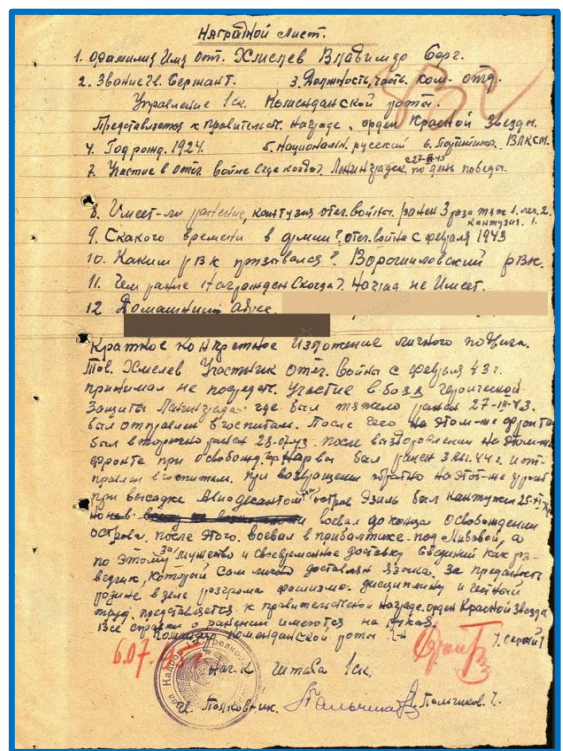 Наградной лист.
1. Фамилия Имя отч. Хмелев Владимир Серг.
2. Звание Гв. Сержант. 3. Должность, часть. ком. отд.
Управление 1ск. Комендантской роты.
Представляется к правительст. награде. орден Красной Звезды.
4. Год рожд. 1924. 5. Националн. русский 6. ВЛКСМ.
7. Участие в отеч. войне Где когда? Ленинградск. по день победы.
8. Имеет-ли ранение, контузия отеч. войны. ранен 3 раза тяж 1. лег. 2.
контузия. 1.
9. Скакого времени в армии? отеч. война с февраля 1943
10. Каким РВК призывался? Ворошиловский рвк.
11. Чем ранее награжден Скогда? Наград не имеет.
12 Домашний адрес.
Краткое конкретное изложение личного подвига.
Тов. Хмелев Участник отеч. войны с февраля 43 г.
принимал не посредст. участие в боях героической
Защиты Ленинграда где был тяжело ранен 27-III-43.
был отправлен в госпитам. После чего на этом-же фронте
был вторично ранен 23-07-43. после выздоровления на этом-же
фронте при освобожд. г. Нарвы был ранен 44 г. и от-
правлен в госпитам. При возвращении обратно на этот-же фронт
при высадке Авиодесантом остров Эзиль был кантужен
воевал до конца Освобождении
острова. после этого. воевал в прибалтике. под Либавой, а
по этому за мужество и своевременно доставку сведений как ра-
ведчик, который сам лично доставлял языка. за преданность
родине в деле розгрома фашизмо. дисциплину и чесный
труд. представляется к правительственой награде. орден Красной Звезда
Все справки о ранении имеются на руках.
Командир Комендантской роты
6.07.
Нач-к Штаба 1ск.
Полковник. Пальчиков.